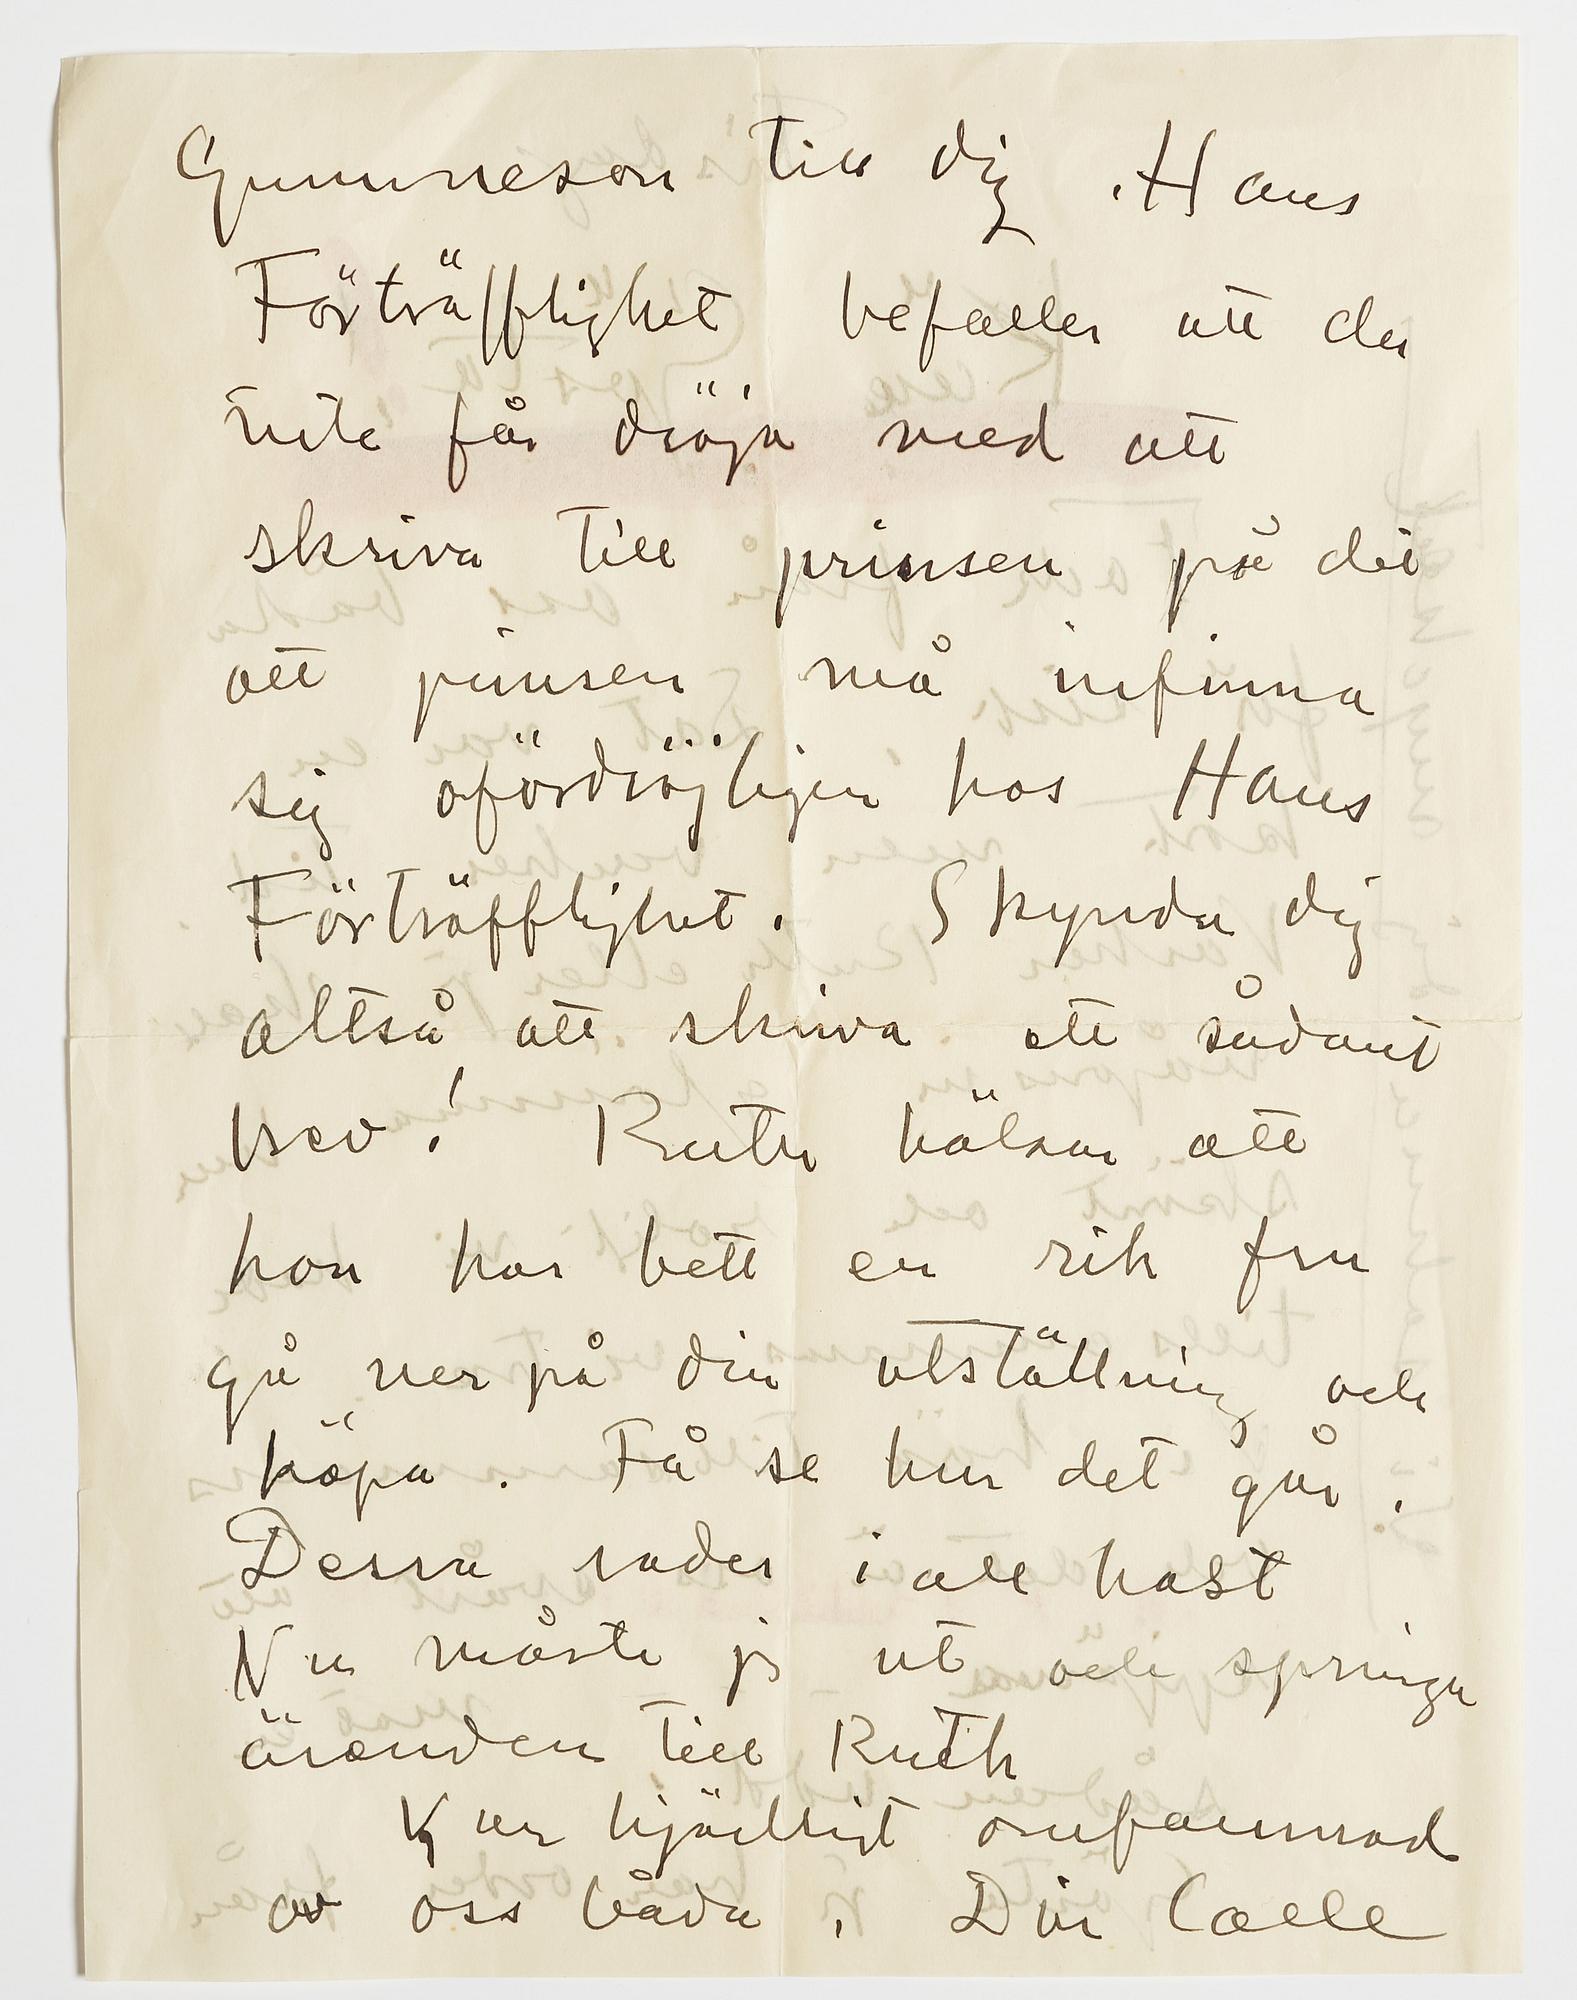 Gummeson till dig. Hans
Förträfflighet befaller att du
inte får dröja med att
skriva till prinsen på det
att prinsen må infinna
sig ofördröjligen hos Hans
Förträfflighet. Skynda dig
alltså att skriva ett sådant
brev! Ruth hälsar att
hon har bett en rik fru
gå ner på din utställning och
köpa. Få se hur det går.
Dessa rader i all hast
Nu måste jg ut och springa
ärenden till Ruth
hjärtligt omfamnad
av oss båda. Din Calle